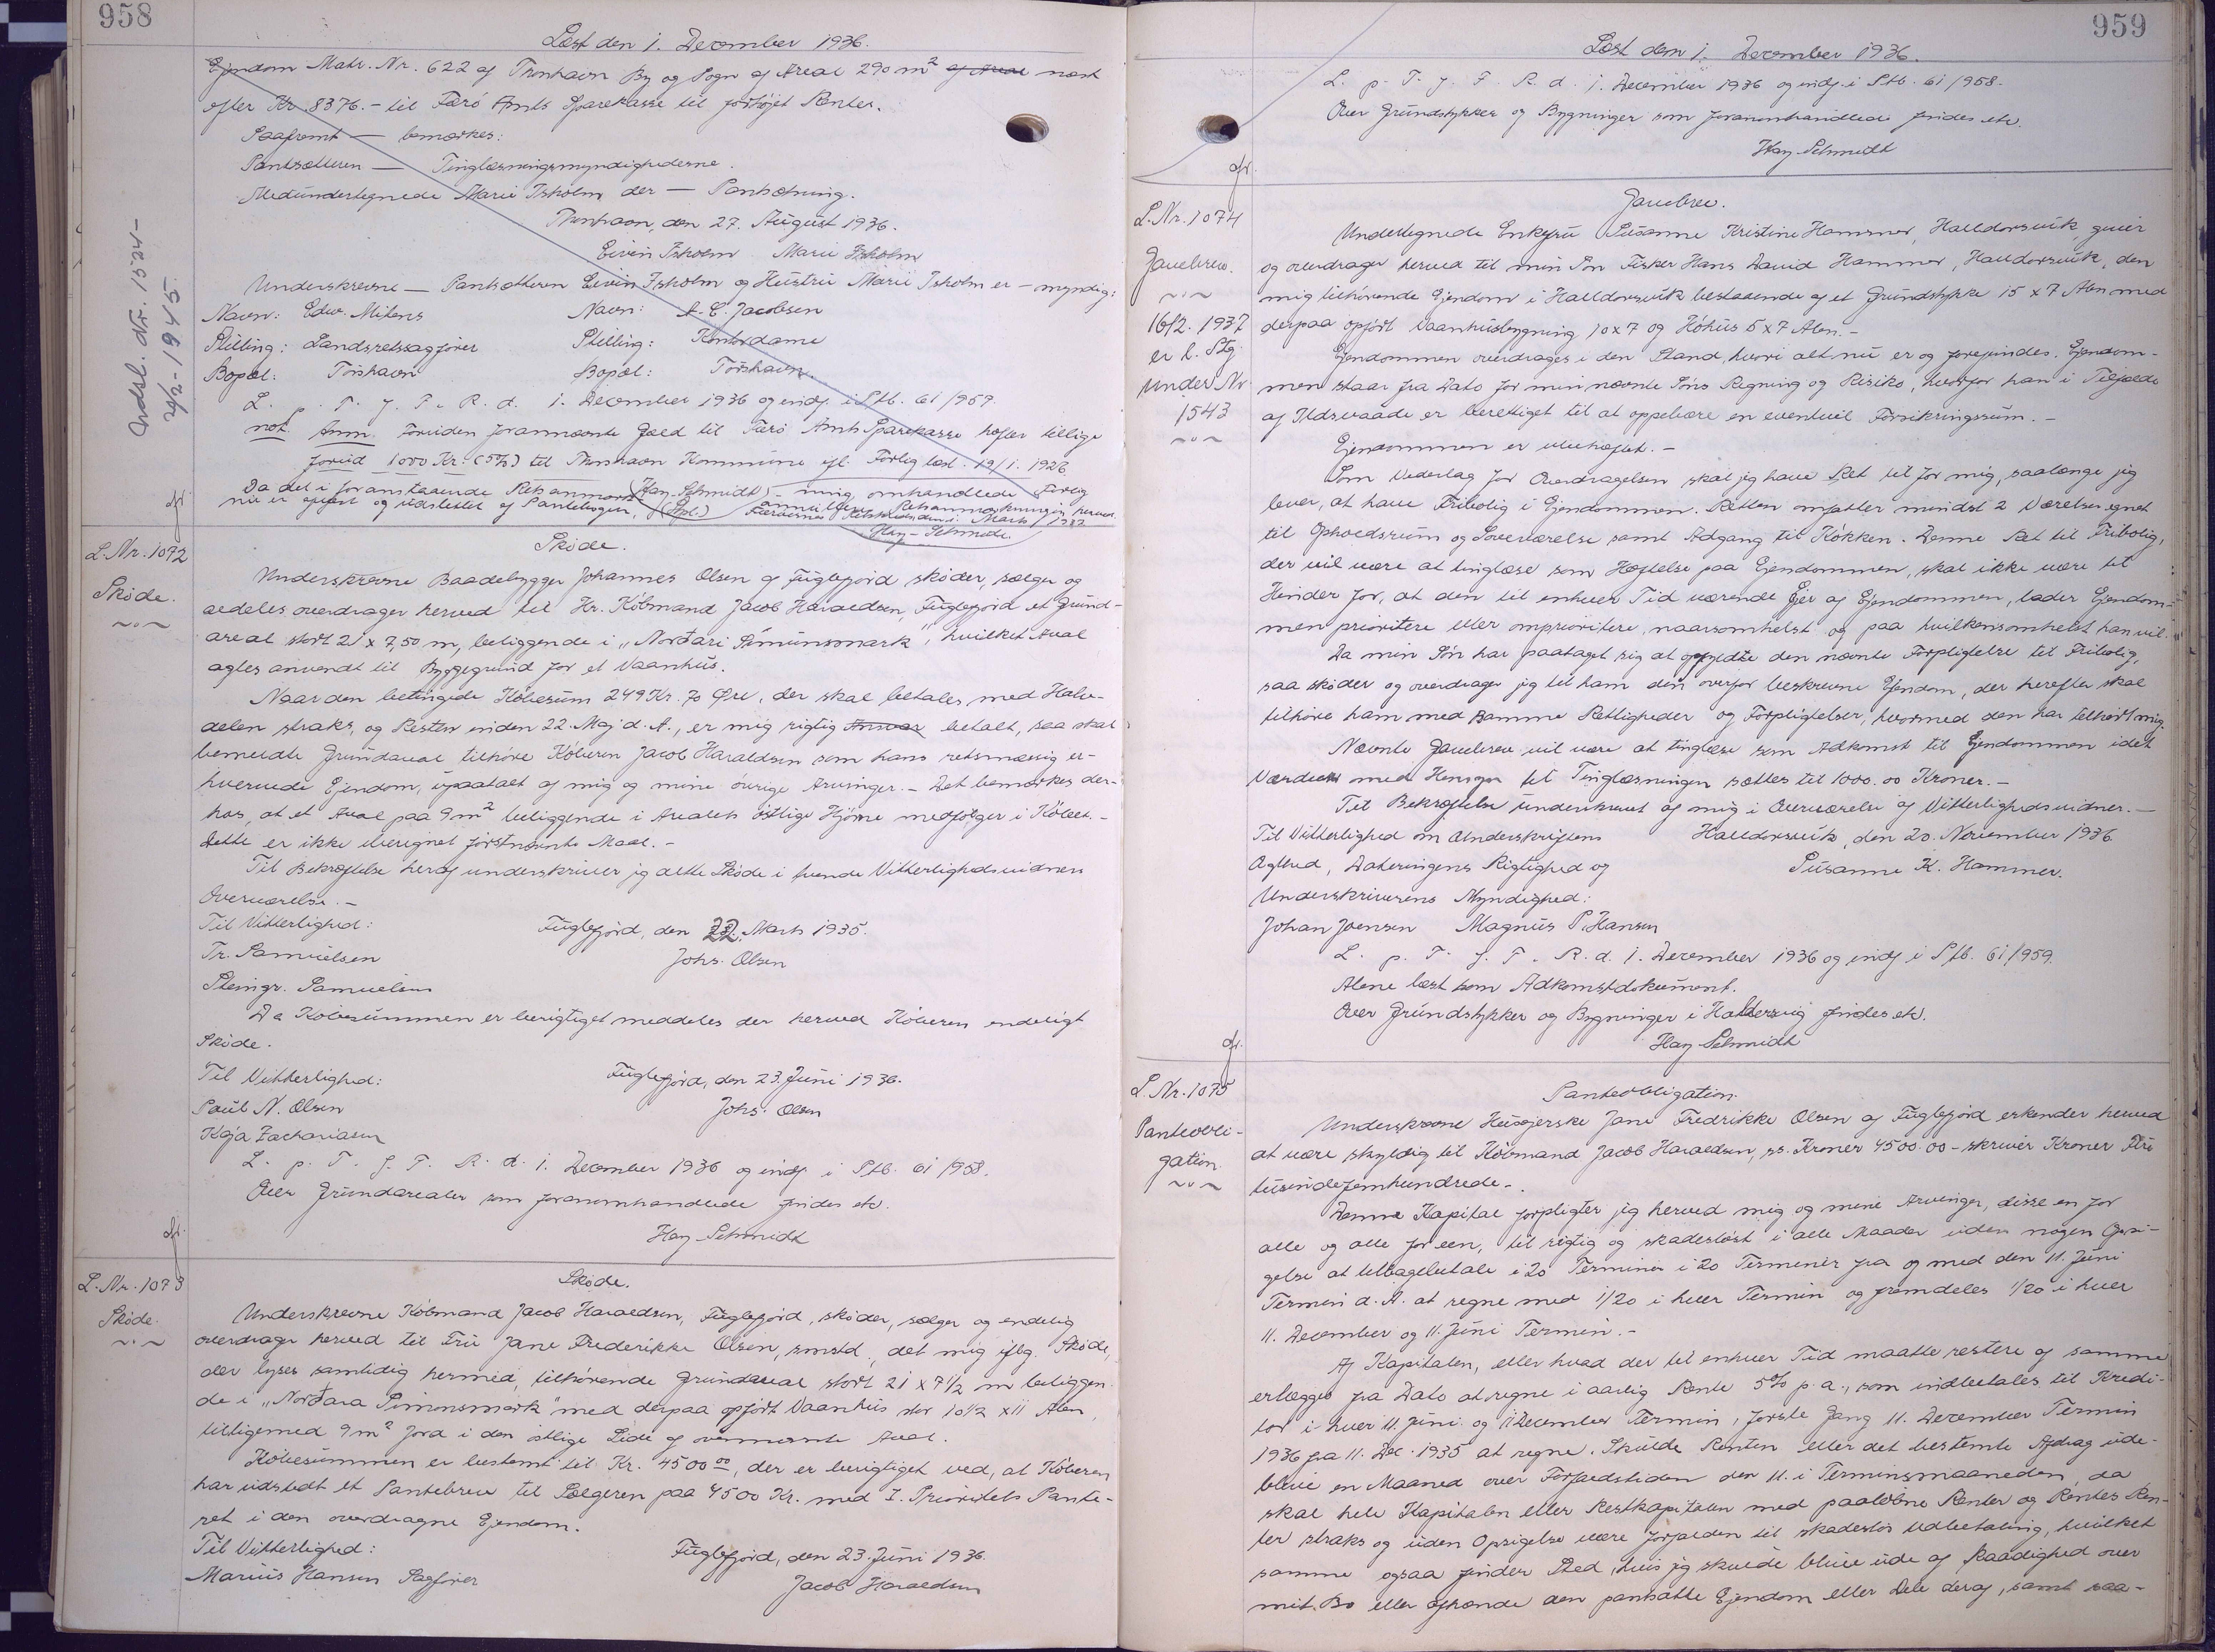 958
Læst den 1. December 1936.
Ejendom Matr. Nr. 622 af Thorshavn By og Sogn af Areal 290 m² af Areal næst
efter Kr. 8376.- til Færø Amts Sparekasse til forhøjet Renter.
Saafremt — bemærkes:
Pantsætteren — Tinglæsningsmyndighederne.
Medundertegnede Marie Isholm der — Pantsætning.
Thorshavn, den 27. August 1936.
Eivin Isholm Marie Isholm
Underskrevne — Pantsætteren Eivin Isholm og Hustru Marie Isholm er — myndig:
Navn: Edw. Mitens Navn: A. C. Jacobsen
Stilling: Landsretssagfører Stilling: Kontordame
Bopæl: Tórshavn Bopæl: Tórshavn.
L. p. T. f. F. R. d. 1. December 1936 og indf. i Ptb. 61/957.
not. Anm. Foruden forannævnte Gæld til Færø Amts Sparekasse hæfter tillige
forud 1000 Kr. (5%) til Thorshavn Kommune ifl. Forlig læst 19/1. 1926
Hay-Schmidt
Da det i foranstaaende Retsanmærkning omhandlede Forlig
nu er aflyst og udslettet af Pantebogen, annulleres Retsanmærkningen herved.
Færøernes Retskreds den 1. Marts 1937
Hay-Schmidt.
Udsl. Nr. 1524-
21/2-1945.
L. Nr. 1072
Skøde.
Skøde.
Underskrevne Baadebygger Johannes Olsen af Fuglefjord skøder, sælger og
aldeles overdrager herved til Hr. Købmand Jacob Haraldsen, Fuglefjord et Grund-
areal stort 21 x 7,50 m, beliggende i „Norðari Símunsmark", hvilket Areal
agtes anvendt til Byggegrund for et Vaanhus.
Naar den betingede Købesum 249 Kr. 70 Øre, der skal betales med Halv-
delen straks, og Resten inden 22. Maj d. A., er mig rigtig betalt, saa skal
bemeldte Grundareal tilhøre Køberen Jacob Haraldsen som hans retsmæssig er-
hvervede Ejendom, upaatalt af mig og mine øvrige Arvinger.- Det bemærkes der-
hos, at et Areal paa 9 m² beliggende i Arealets østlige Hjørne medfølger i Købet.-
Dette er ikke iberegnet førstnævnte Maal.-
Til Bekræftelse heraf underskriver jeg dette Skøde i tvende Vitterlighedsvidners
Overværelse.-
Til Vitterlighed: Fuglefjord, den 22. Marts 1935.
Tr. Samuelsen Johs. Olsen
Steingr. Samuelsen
Da Købesummen er berigtiget meddeles der herved Køberen endeligt
Skøde.
Til Vitterlighed: Fuglefjord, den 23. Juni 1936.
Paul N. Olsen Johs. Olsen
Kaja Zachariasen
L. p. T. f. F. R. d. 1. December 1936 og indf. i Ptb. 61/958.
Over Grundarealer som foranomhandlede findes etc.
Hay-Schmidt
L. Nr. 1073
Skøde.
Skøde.
Underskrevne Købmand Jacob Haraldsen, Fuglefjord, skøder, sælger og endelig
overdrager herved til Fru Jane Frederikke Olsen, smstd., det mig iflg. Skøde,
der lyses samtidig hermed, tilhørende Grundareal stort 21 x 7 1/2 m beliggen-
de i „Norðara Simonsmark" med derpaa opført Vaanhus stor 10 1/2 x 11 Alen,
tilligemed 9 m² Jord i den østlige Side af ovennævnte Areal.
Købesummen er bestemt til Kr. 4500 00, der er berigtiget ved, at Køberen
har udstedt et Pantebrev til Sælgeren paa 4500 Kr. med I. Prioritets Pante-
ret i den overdragne Ejendom.
Til Vitterlighed: Fuglefjord, den 23. Juni 1936.
Marius Hansen Sagfører Jacob Haraldsen
959
Læst den 1. December 1936.
L. p. T. f. F. R. d. 1. December 1936 og indf. i Ptb. 61/958.
Over Grundstykker og Bygninger som foranomhandlede findes etc.
Hay-Schmidt
L. Nr. 1074
Gavebrev.
16/2. 1937
er l. Stg.
under Nr.
1543
Gavebrev.
Undertegnede Enkefru Susanne Kristine Hammer, Halldorsvik, giver
og overdrager herved til min Søn Fisker Hans David Hammer, Halldorsvik, den
mig tilhørende Ejendom i Halldorsvik bestaaende af et Grundstykke 15 x 7 Alen med
derpaa opført Vaanhusbygning 10 x 7 og Hóhus 5 x 7 Alen.-
Ejendommen overdrages i den Stand, hvori alt nu er og forefindes. Ejendom-
men staar fra Dato for min nævnte Søns Regning og Risiko, hvorfor han i Tilfælde
af Ildsvaade er berettiget til at oppebære en eventuel Forsikringssum.-
Ejendommen er ubehæftet.-
Som Vederlag for Overdragelsen skal jeg have Ret til for mig, saalænge jeg
lever, at have Fribolig i Ejendommen. Retten omfatter mindst 2 Værelser egnet
til Opholdsrum og Soveværelse samt Adgang til Køkken. Denne Ret til Fribolig,
der vil være at tinglæse som Hæftelse paa Ejendommen, skal ikke være til
Hinder for, at den til enhver Tid værende Ejer af Ejendommen, lader Ejendom-
men prioritere eller omprioritere, naarsomhelst og paa hvilkensomhelst han vil.
Da min Søn har paataget sig at opfyldte den nævnte Forpligtelse til Fribolig,
saa skøder og overdrager jeg til ham den overfor beskrevne Ejendom, der herefter skal
tilhøre ham med samme Rettigheder og Forpligtelser, hvormed den har tilhørt mig.
Nævnte Gavebrev vil være at tinglæse som Adkomst til Ejendommen idet
Værdien med Hensyn til Tinglæsningen sættes til 1000.00 Kroner.-
Til Bekræftelse underskrevet af mig i Overværelse af Vitterlighedsvidner.-
Til Vitterlighed om Underskriftens Halldorsvik, den 20. November 1936
Ægthed, Dateringens Rigtighed og Susanne K. Hammer.
Underskriverens Myndighed:
Johan Joensen Magnus P. Hansen
L. p. T. f. F. R. d. 1. December 1936 og indf. i Ptb. 61/959.
Alene læst som Adkomstdokument.
Over Grundstykker og Bygninger i Haldersvig findes etc.
Hay-Schmidt
L. Nr. 1075
Panteobli-
gation.
Panteobligation.
Underskrevne Husejerske Jane Fredrikke Olsen af Fuglefjord erkender herved
at være skyldig til Købmand Jacob Haraldsen, ss. Kroner 4500.00 - skriver Kroner Fire
tusindefemhundrede-.
Denne Kapital forpligter jeg herved mig og mine Arvinger, disse en for
alle og alle for een, til rigtig og skadesløst i alle Maader uden nogen Opsi-
gelse at tilbagebetale i 20 Terminer i 20 Terminer fra og med den 11. Juni
Termin d. A. at regne med 1/20 i hver Termin og fremdeles 1/20 i hver
11. December og 11. Juni Termin.-
Af Kapitalen, eller hvad der til enhver Tid maatte restere af samme
erlægges fra Dato at regne i aarlig Rente 5% p. a., som indbetales til Kredi-
tor i hver 11. Juni og 11 December Termin, første Gang 11. December Termin
1936 fra 11. Dec. 1935 at regne. Skulde Renten eller det bestemte Afdrag ude-
blive en Maaned over Forfaldstiden den 11. i Terminsmaaneden, da
skal hele Kapitalen eller Restkapitalen med paaløbne Renter og Renters Ren-
ter straks og uden Opsigelse være forfalden til skadesløs Udbetaling, hvilket
samme ogsaa finder Sted, hvis jeg skulde blive ude af Raadighed over
mit Bo eller afhænde den pantsatte Ejendom eller Dele deraf, samt saa-